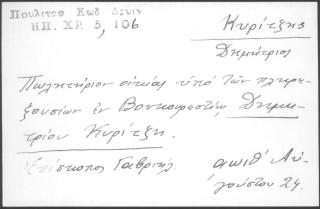 Πουλίτσα Κωδ
ΗΠ. ΧΡ. 5, 106
Κυρίτζης
Δημήτριος
Πωλητήριον οἰκίας ὑπό τῶν πληρε-
ξουσίων ἐν Βουκουρεστίῳ Δημη-
τρίου Κυρίτζη.
Ἐπίσκοπος Γαβριήλ αωιθ' Αὐ-
γούστου 24.